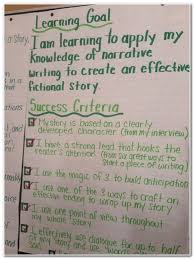 Learning Goal
I am learning to apply my
knowledge of narrative
writing to create an effective
fictional story.
Success Criteria
My story is based on a clearly
developed character (from my interview)
I have a strong lead that hooks the
reader's attention (from six great ways to
Start a piece of writing)
I use the magic of 3 to build anticipation
I use one of the 3 ways to craft an
effective ending to wrap up my story
I use one point of view throughout
my whole story
I effectively use dialogue for up to half
of my story and use